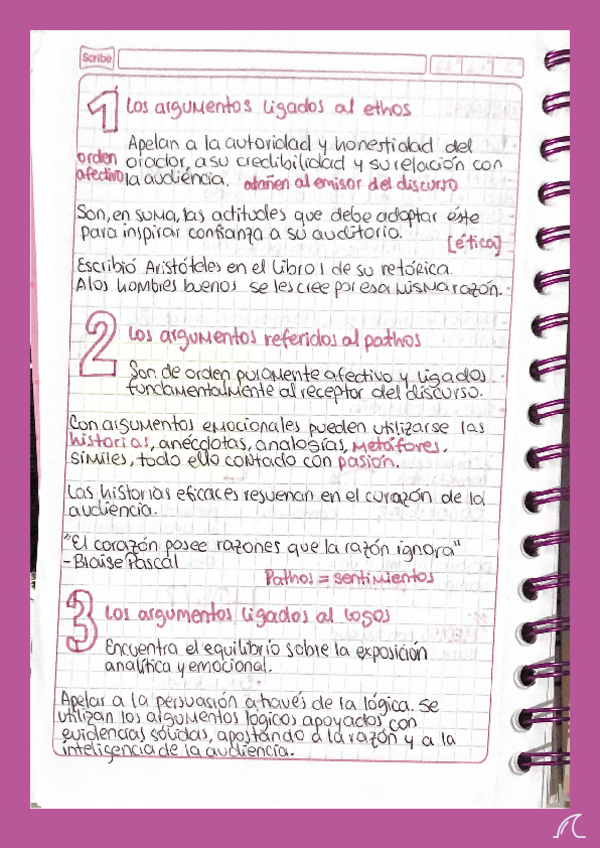 Scribe
1 Los argumentos ligados al ethos
Apelan a la autoridad y honestidad del
orden orador, a su credibilidad y su relación con
afectivo la audiencia. atañen al emisor del discurso
Son, en suma, las actitudes que debe adoptar éste
para inspirar confianza a su auditorio.
[ética]
Escribió Aristóteles en el libro 1 de su retórica.
A los hombres buenos se les cree por esa misma razón.
2 Los argumentos referidos al pathos
Son de orden puramente afectivo y ligados
fundamentalmente al receptor del discurso.
Con argumentos emocionales pueden utilizarse las
historias, anécdotas, analogías, metáfores,
símiles, todo ello contado con pasión.
Las historias eficaces resuenan en el corazón de la
audiencia.
"El corazón posee razones que la razón ignora"
-Blaise Pascal
Pathos = sentimientos
3 Los argumentos ligados al logos
Encuentra el equilibrio sobre la exposición
analítica y emocional.
Apelar a la persuasión através de la lógica. Se
utilizan los argumentos lógicos apoyados con
evidencias sólidas, apostando a la razón y a la
inteligencia de la audiencia.